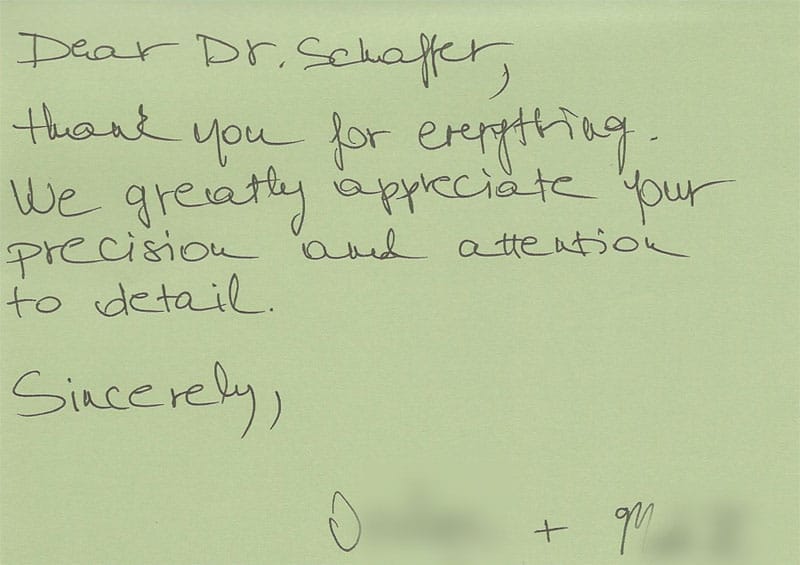 Dear Dr. Schaffer,
thank you for everything.
We greatly appreciate your
precision and attention
to detail.
Sincerely,
+